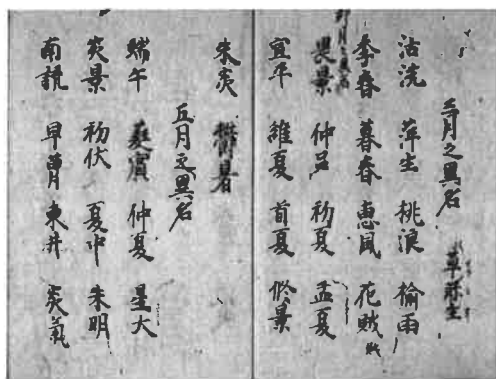 三月之異名 草弥生
沽洗 萍生 桃浪 楡雨
季春 暮春 恵風 花賊
卯月之異名
畏景 仲呂 初夏 孟夏
宜平 維夏 首夏 修景
朱炎 欝暑
五月之異名
端午 蕤賓 仲夏 星大
炎景 初伏 夏中 朱明
南訛 早 東井 炎氣